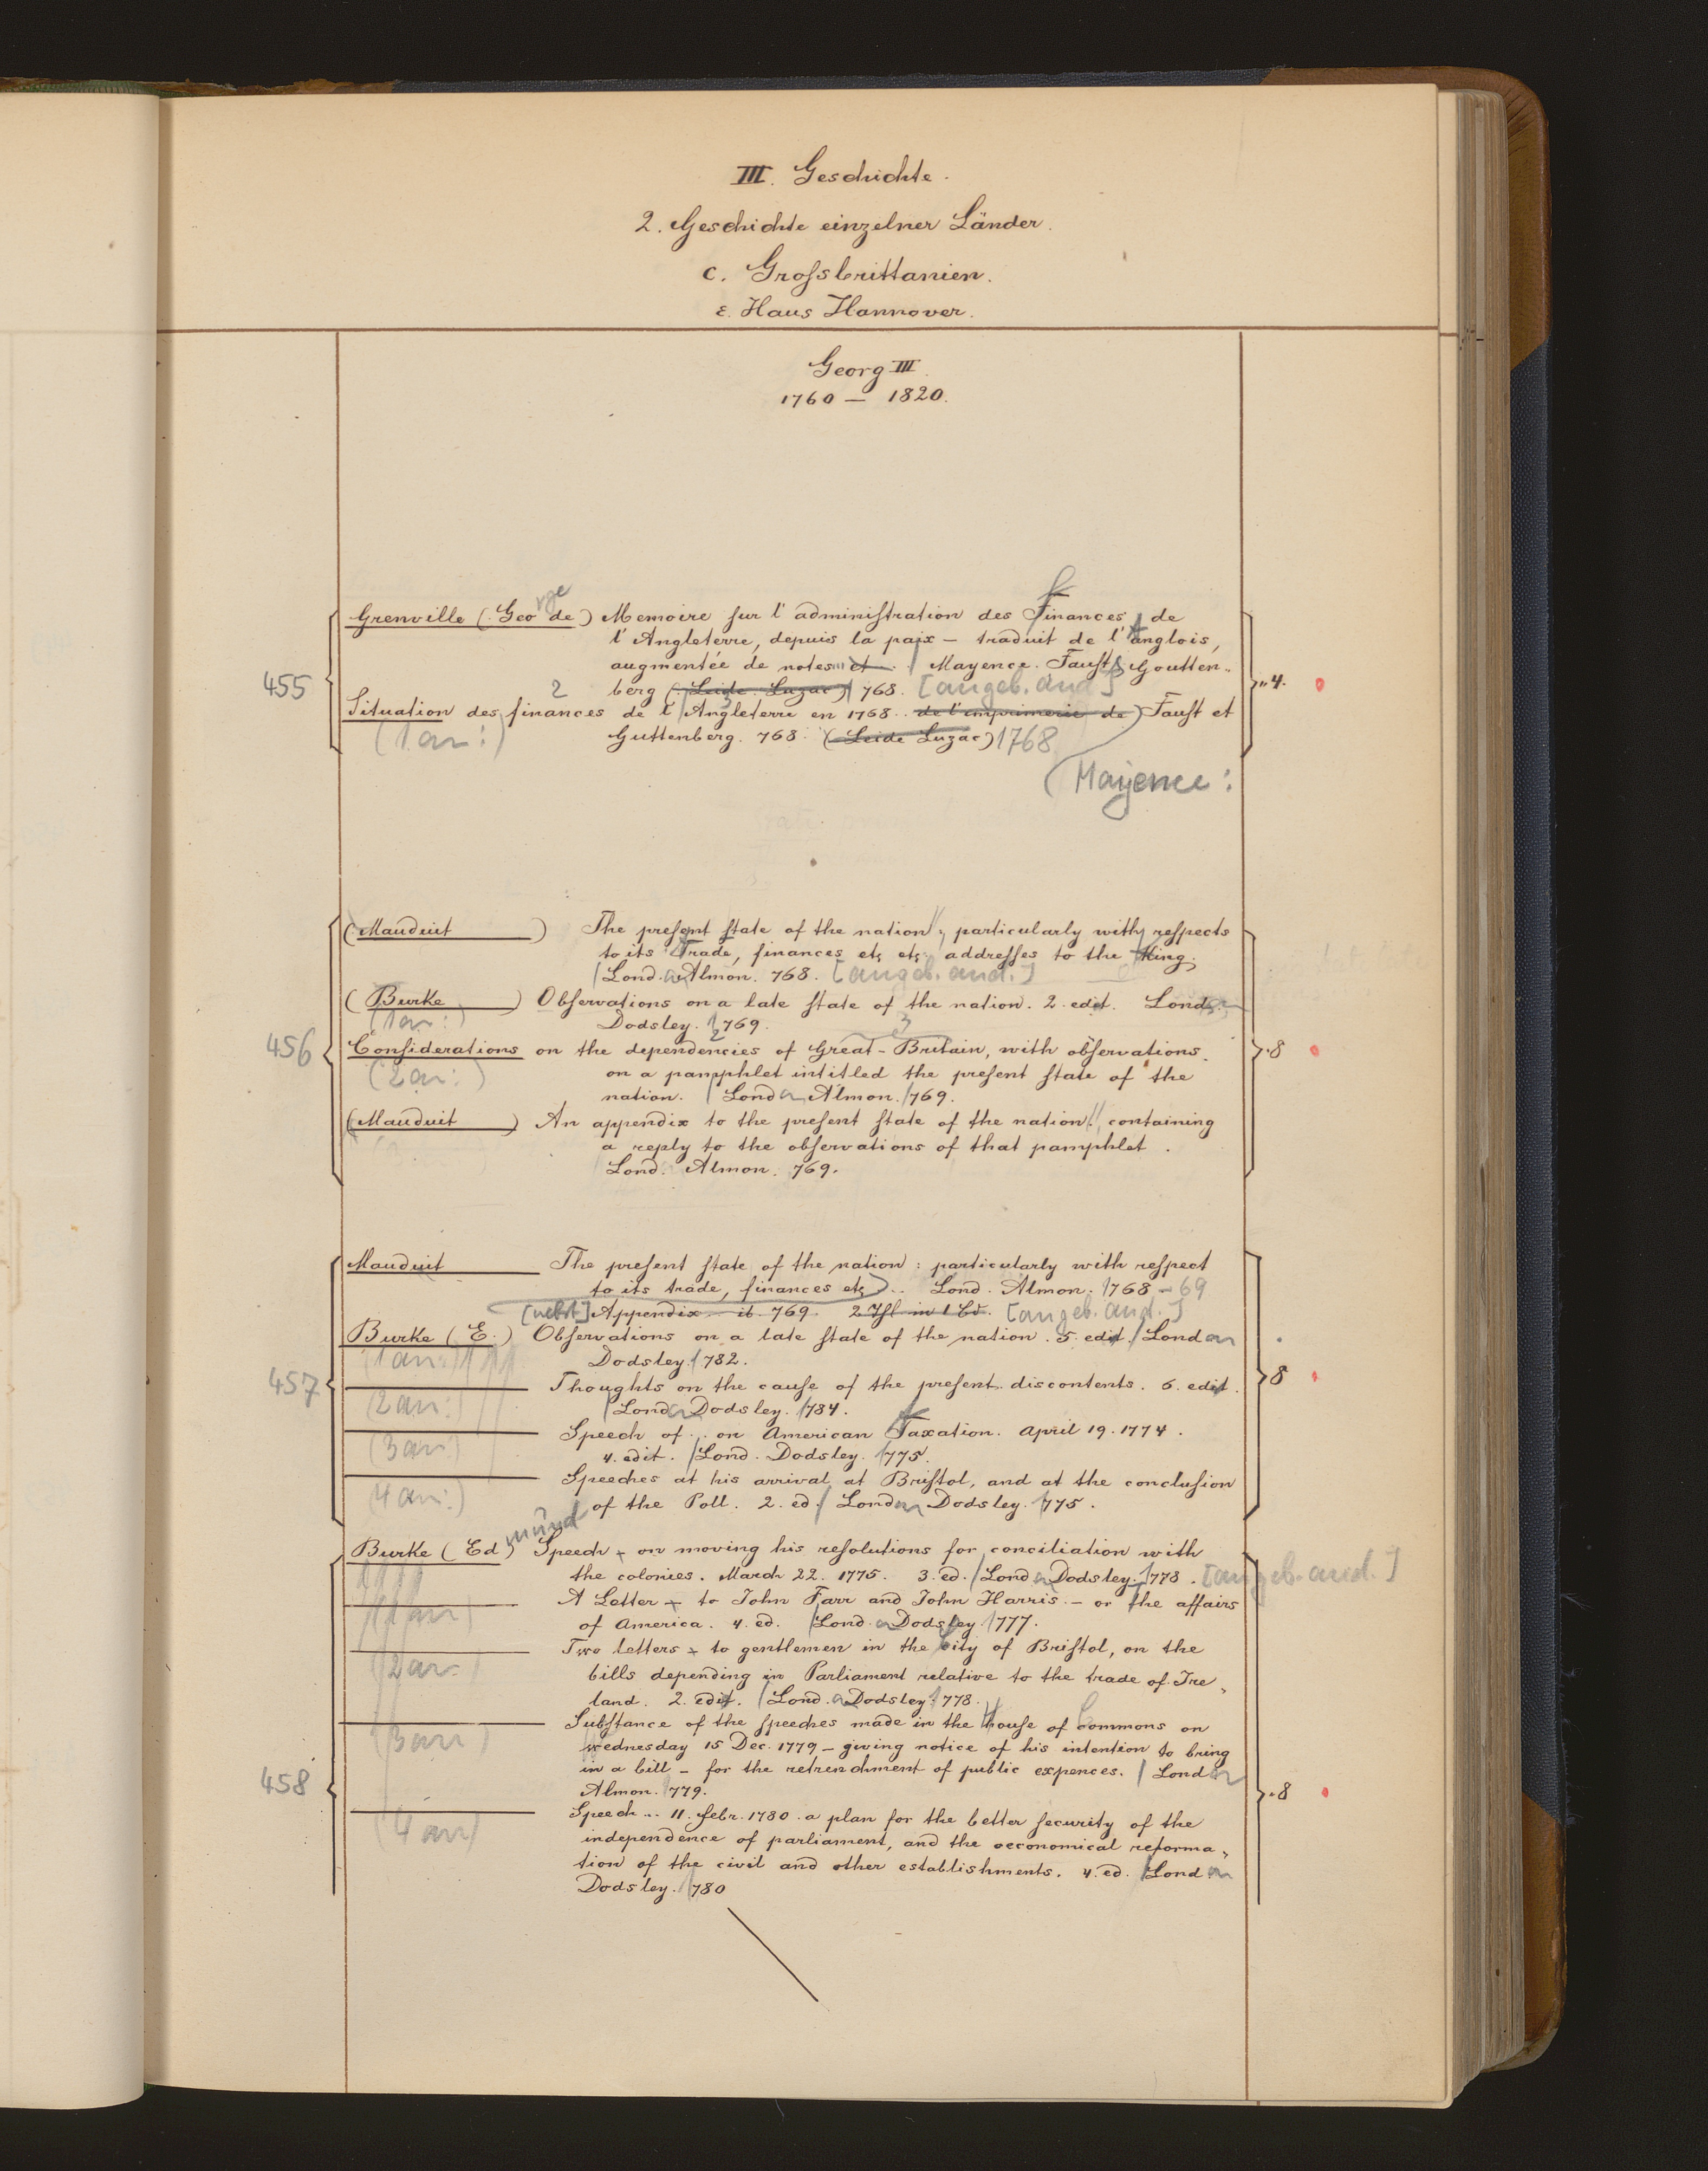 III. Geschichte.
2. Geschichte einzelner Länder.
c. Grossbrittanien.
ε. Haus Hannover.
Georg III.
1760 — 1820.
rge f
Grenville (Geo de) Memoire sur l'administration des Finances de
l'Angleterre, depuis la paix — traduit de l'anglois,
augmentée de notes et . Mayence. Faust & Goutten-
455 berg (Leide. Luzac) 768. [angeb. and]
2 3
Situation des finances de l'Angleterre en 1768.. de l'imprimerie de Faust et
(1 an:) Guttenberg. 768. (Leide Luzac) 1768
"4.
(Mayence:
(Mauduit ) The present state of the nation, particularly with respects
to its Trade, finances etc etc addresses to the King.
Lond. Almon. 768. [angeb. and.]
(Burke ) Observations on a late state of the nation. 2. edit. Lond
(1 an:) Dodsley. 1769.
2 3
456 Considerations on the dependencies of Great-Britain, with observations
(2 an:) on a pamphlet intitled the present state of the
nation. Lond Almon. 1769.
·8
(Mauduit ) An appendix to the present state of the nation, containing
a reply to the observations of that pamphlet.
Lond. Almon. 769.
Mauduit The present state of the nation: particularly with respect
to its trade, finances etc .. Lond. Almon. 1768 - 69
[nebst] Appendix ib. 769. 2 Thl in 1 Bd. [angeb. and.]
Burke (E.) Observations on a late state of the nation. 5. edit. Lond
(1 an:) Dodsley. 1782.
457 Thoughts on the cause of the present discontents. 6. edit.
(2 an:) Lond Dodsley. 1784.
8
Speech of .. on American Taxation. April 19. 1774.
(3 an:) 4. edit. Lond. Dodsley. 1775.
Speeches at his arrival at Bristol, and at the conclusion
(4 an:) of the Poll. 2. ed. Lond Dodsley. 1775.
mund
Burke (Ed ) Speech on moving his resolutions for conciliation with
the colonies. March 22. 1775. 3. ed. Lond Dodsley. 1778. [angeb. and.]
A Letter to John Farr and John Harris - or the affairs
(1 an) of America. 4. ed. Lond. Dodsley 1777.
Two letters to gentlemen in the City of Bristol, on the
(2 an: bills depending in Parliament relative to the trade of Ire-
land. 2. edit. Lond. Dodsley. 1778.
Substance of the speeches made in the House of Commons on
(3 an) wednesday 15 Dec. 1779 - giving notice of his intention to bring
in a bill - for the retrenchment of public expences. Lond
458 Almon. 1779.
·8
Speech... 11. Febr. 1780. a plan for the better security of the
(4 an) independence of parliament, and the oeconomical reforma-
tion of the civil and other establishments. 4. ed. Lond
Dodsley. 1780